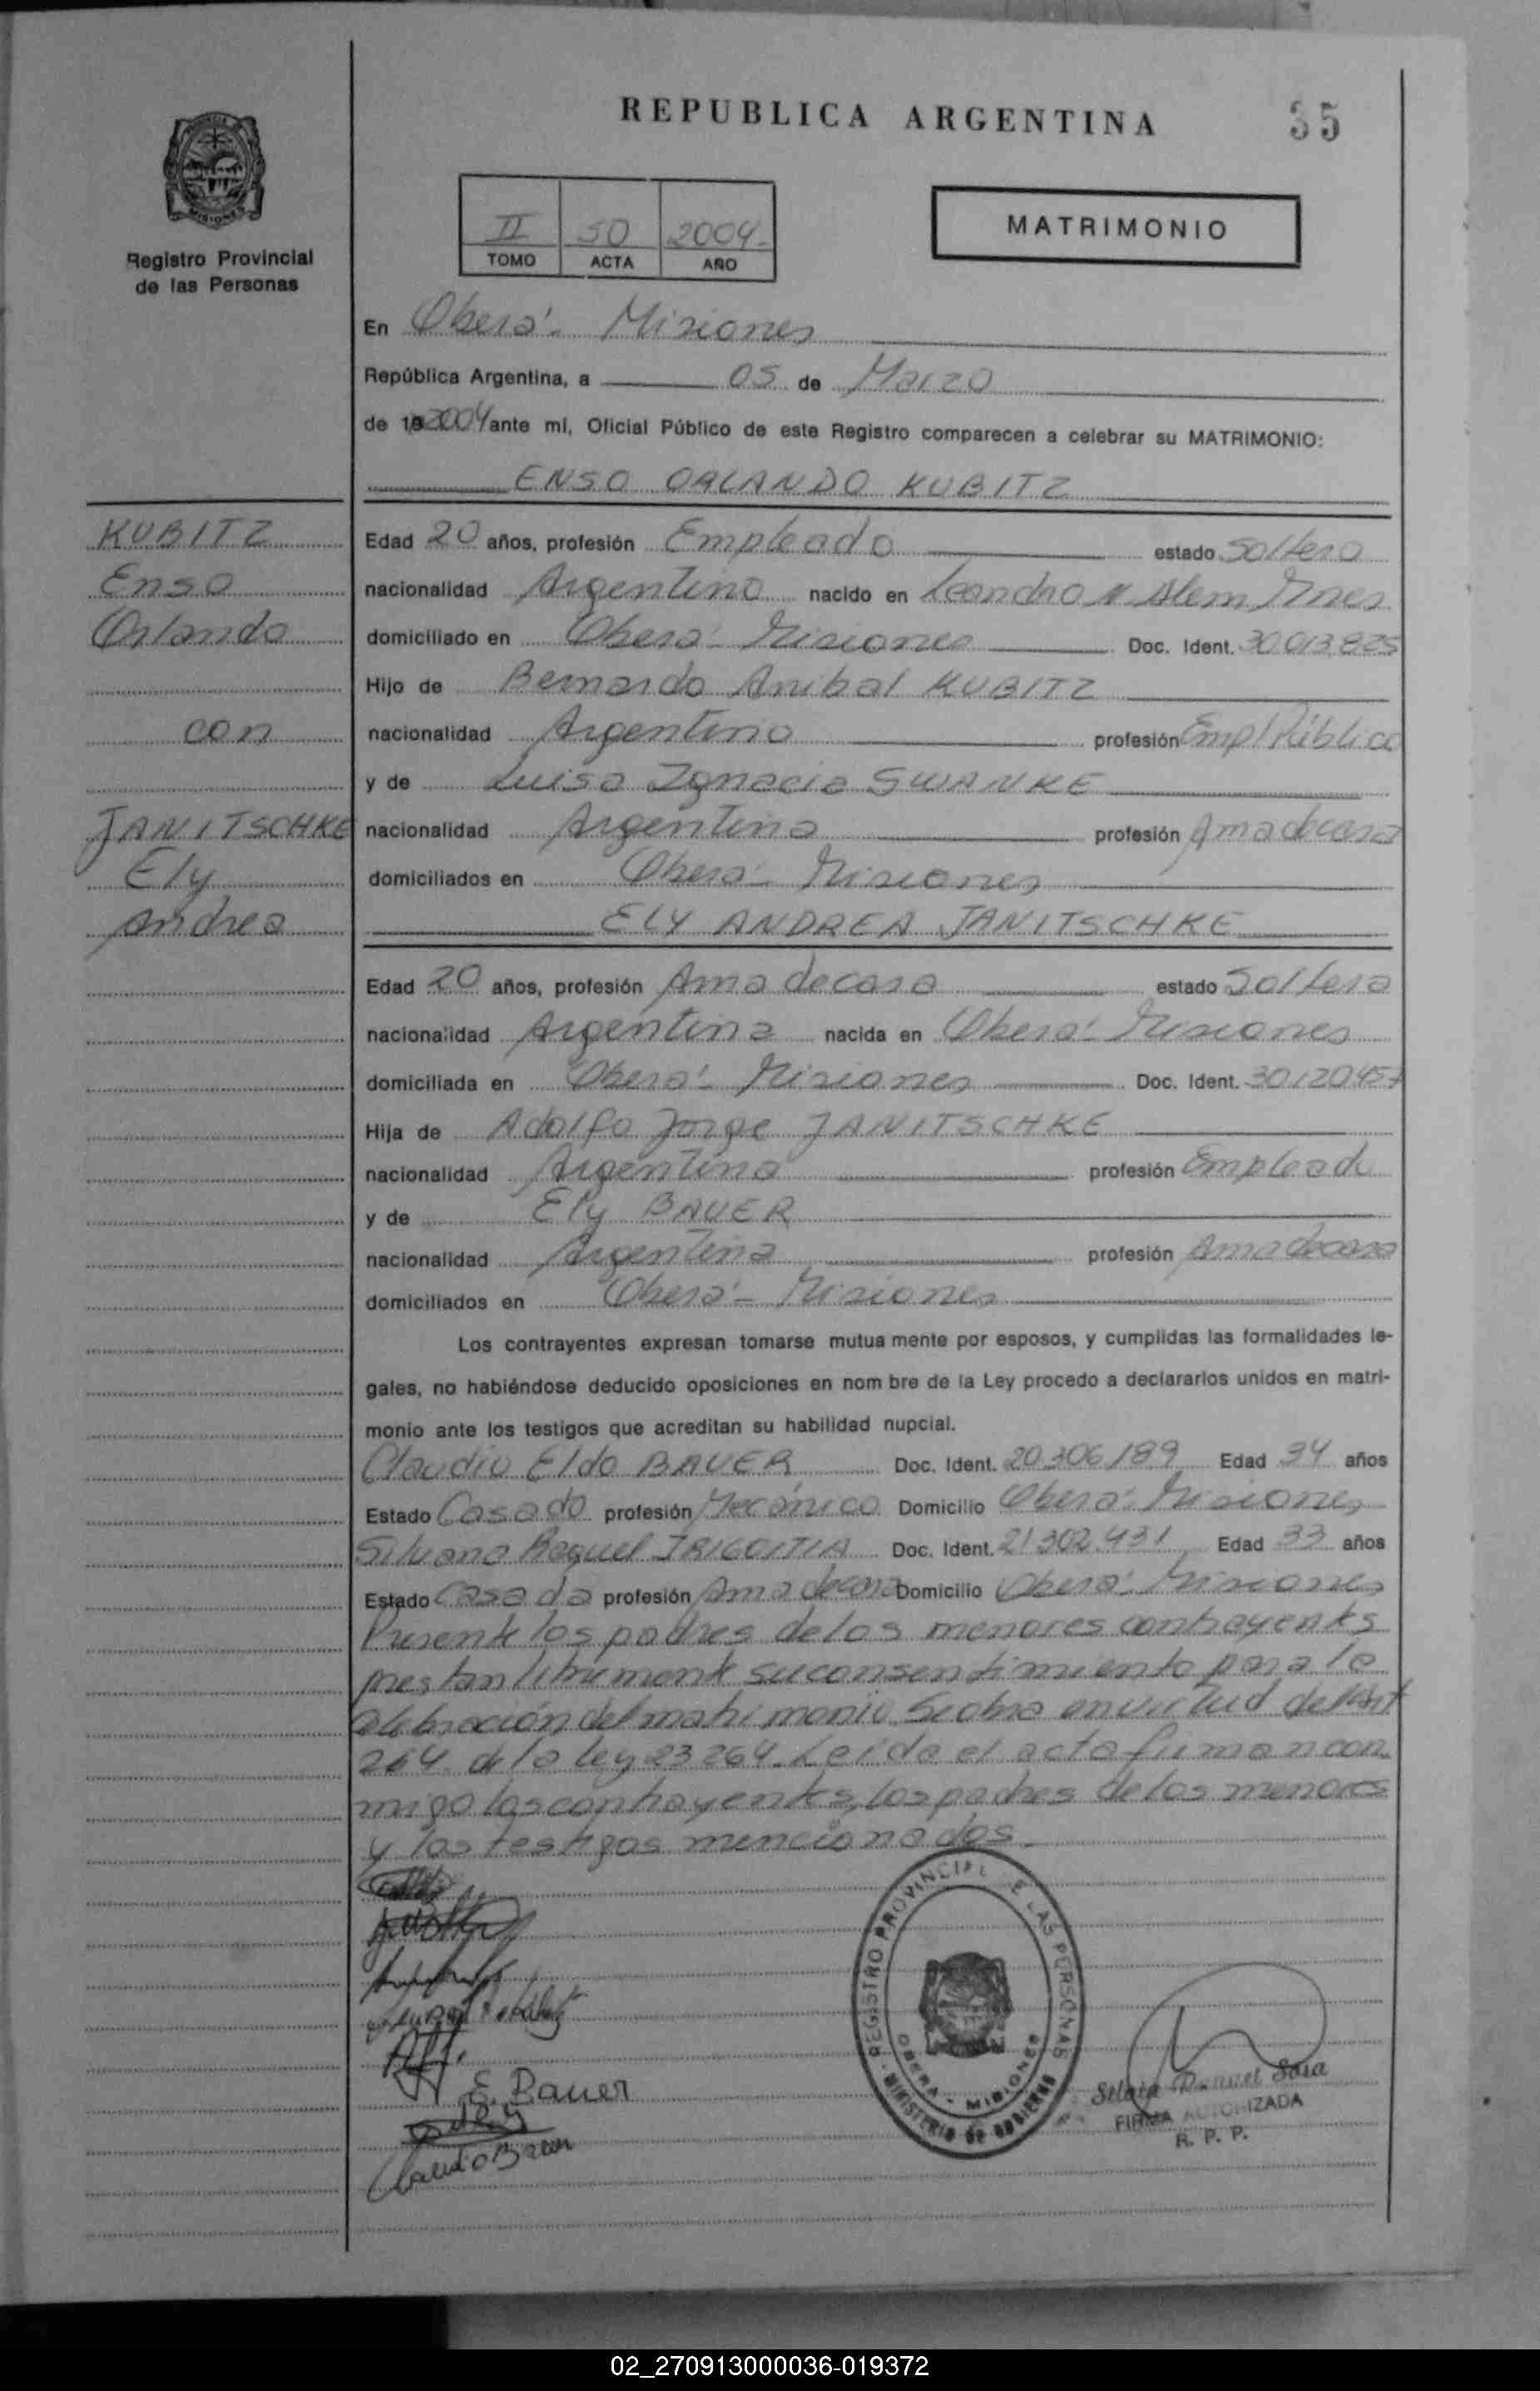 REPUBLICA ARGENTINA
35
MISIONES
Registro Provincial
de las Personas
II 50 2004.
TOMO ACTA AÑO
MATRIMONIO
En Oberá - Misiones
República Argentina, a 05 de Marzo
de 19 2004 ante mí, Oficial Público de este Registro comparecen a celebrar su MATRIMONIO:
ENSO ORLANDO KUBITZ
KUBITZ
Enso
Orlando
con
JANITSCHKE
Ely
Andrea
Edad 20 años, profesión Empleado estado Soltero
nacionalidad Argentino nacido en Leandro N Alem Mnes
domiciliado en Oberá - Misiones Doc. Ident. 30 013 825
Hijo de Bernardo Anibal KUBITZ
nacionalidad Argentino profesión Empl Público
y de Luisa Ignacia SWANKE
nacionalidad Argentina profesión Ama decasa
domiciliados en Oberá - Misiones
ELY ANDREA JANITSCHKE
Edad 20 años, profesión Ama decasa estado Soltera
nacionalidad Argentina nacida en Oberá - Misiones
domiciliada en Oberá - Misiones Doc. Ident. 30120457
Hija de Adolfo Jorge JANITSCHKE
nacionalidad Argentino profesión Empleado
y de Ely BAUER
nacionalidad Argentina profesión Ama decasa
domiciliados en Oberá - Misiones
Los contrayentes expresan tomarse mutua mente por esposos, y cumplidas las formalidades le-
gales, no habiéndose deducido oposiciones en nom bre de la Ley procedo a declararlos unidos en matri-
monio ante los testigos que acreditan su habilidad nupcial.
Claudio Eldo BAUER Doc. Ident. 20.306.189 Edad 34 años
Estado Casado profesión Mecánico Domicilio Oberá - Misiones
Silvana Raquel IRIGOITIA Doc. Ident. 21 302 431 Edad 33 años
Estado Casada profesión Ama decasa Domicilio Oberá - Misiones
Presente los padres delos menores contrayentes
prestan libremente suconsentimiento para la
celebración del matrimonio Se obra en virtud del Art
264 de la ley 23264. Leída el acta firman con
migo los contrayentes, los padres de los menores
y los testigos mencionados.
REGISTRO PROVINCIAL DE LAS PERSONAS
OBERA - MISIONES
MINISTERIO DE GOBIERNO
E. Bauer
Claudio Bauer
Sosa
FIRMA AUTORIZADA
R. P. P.
02_270913000036-019372